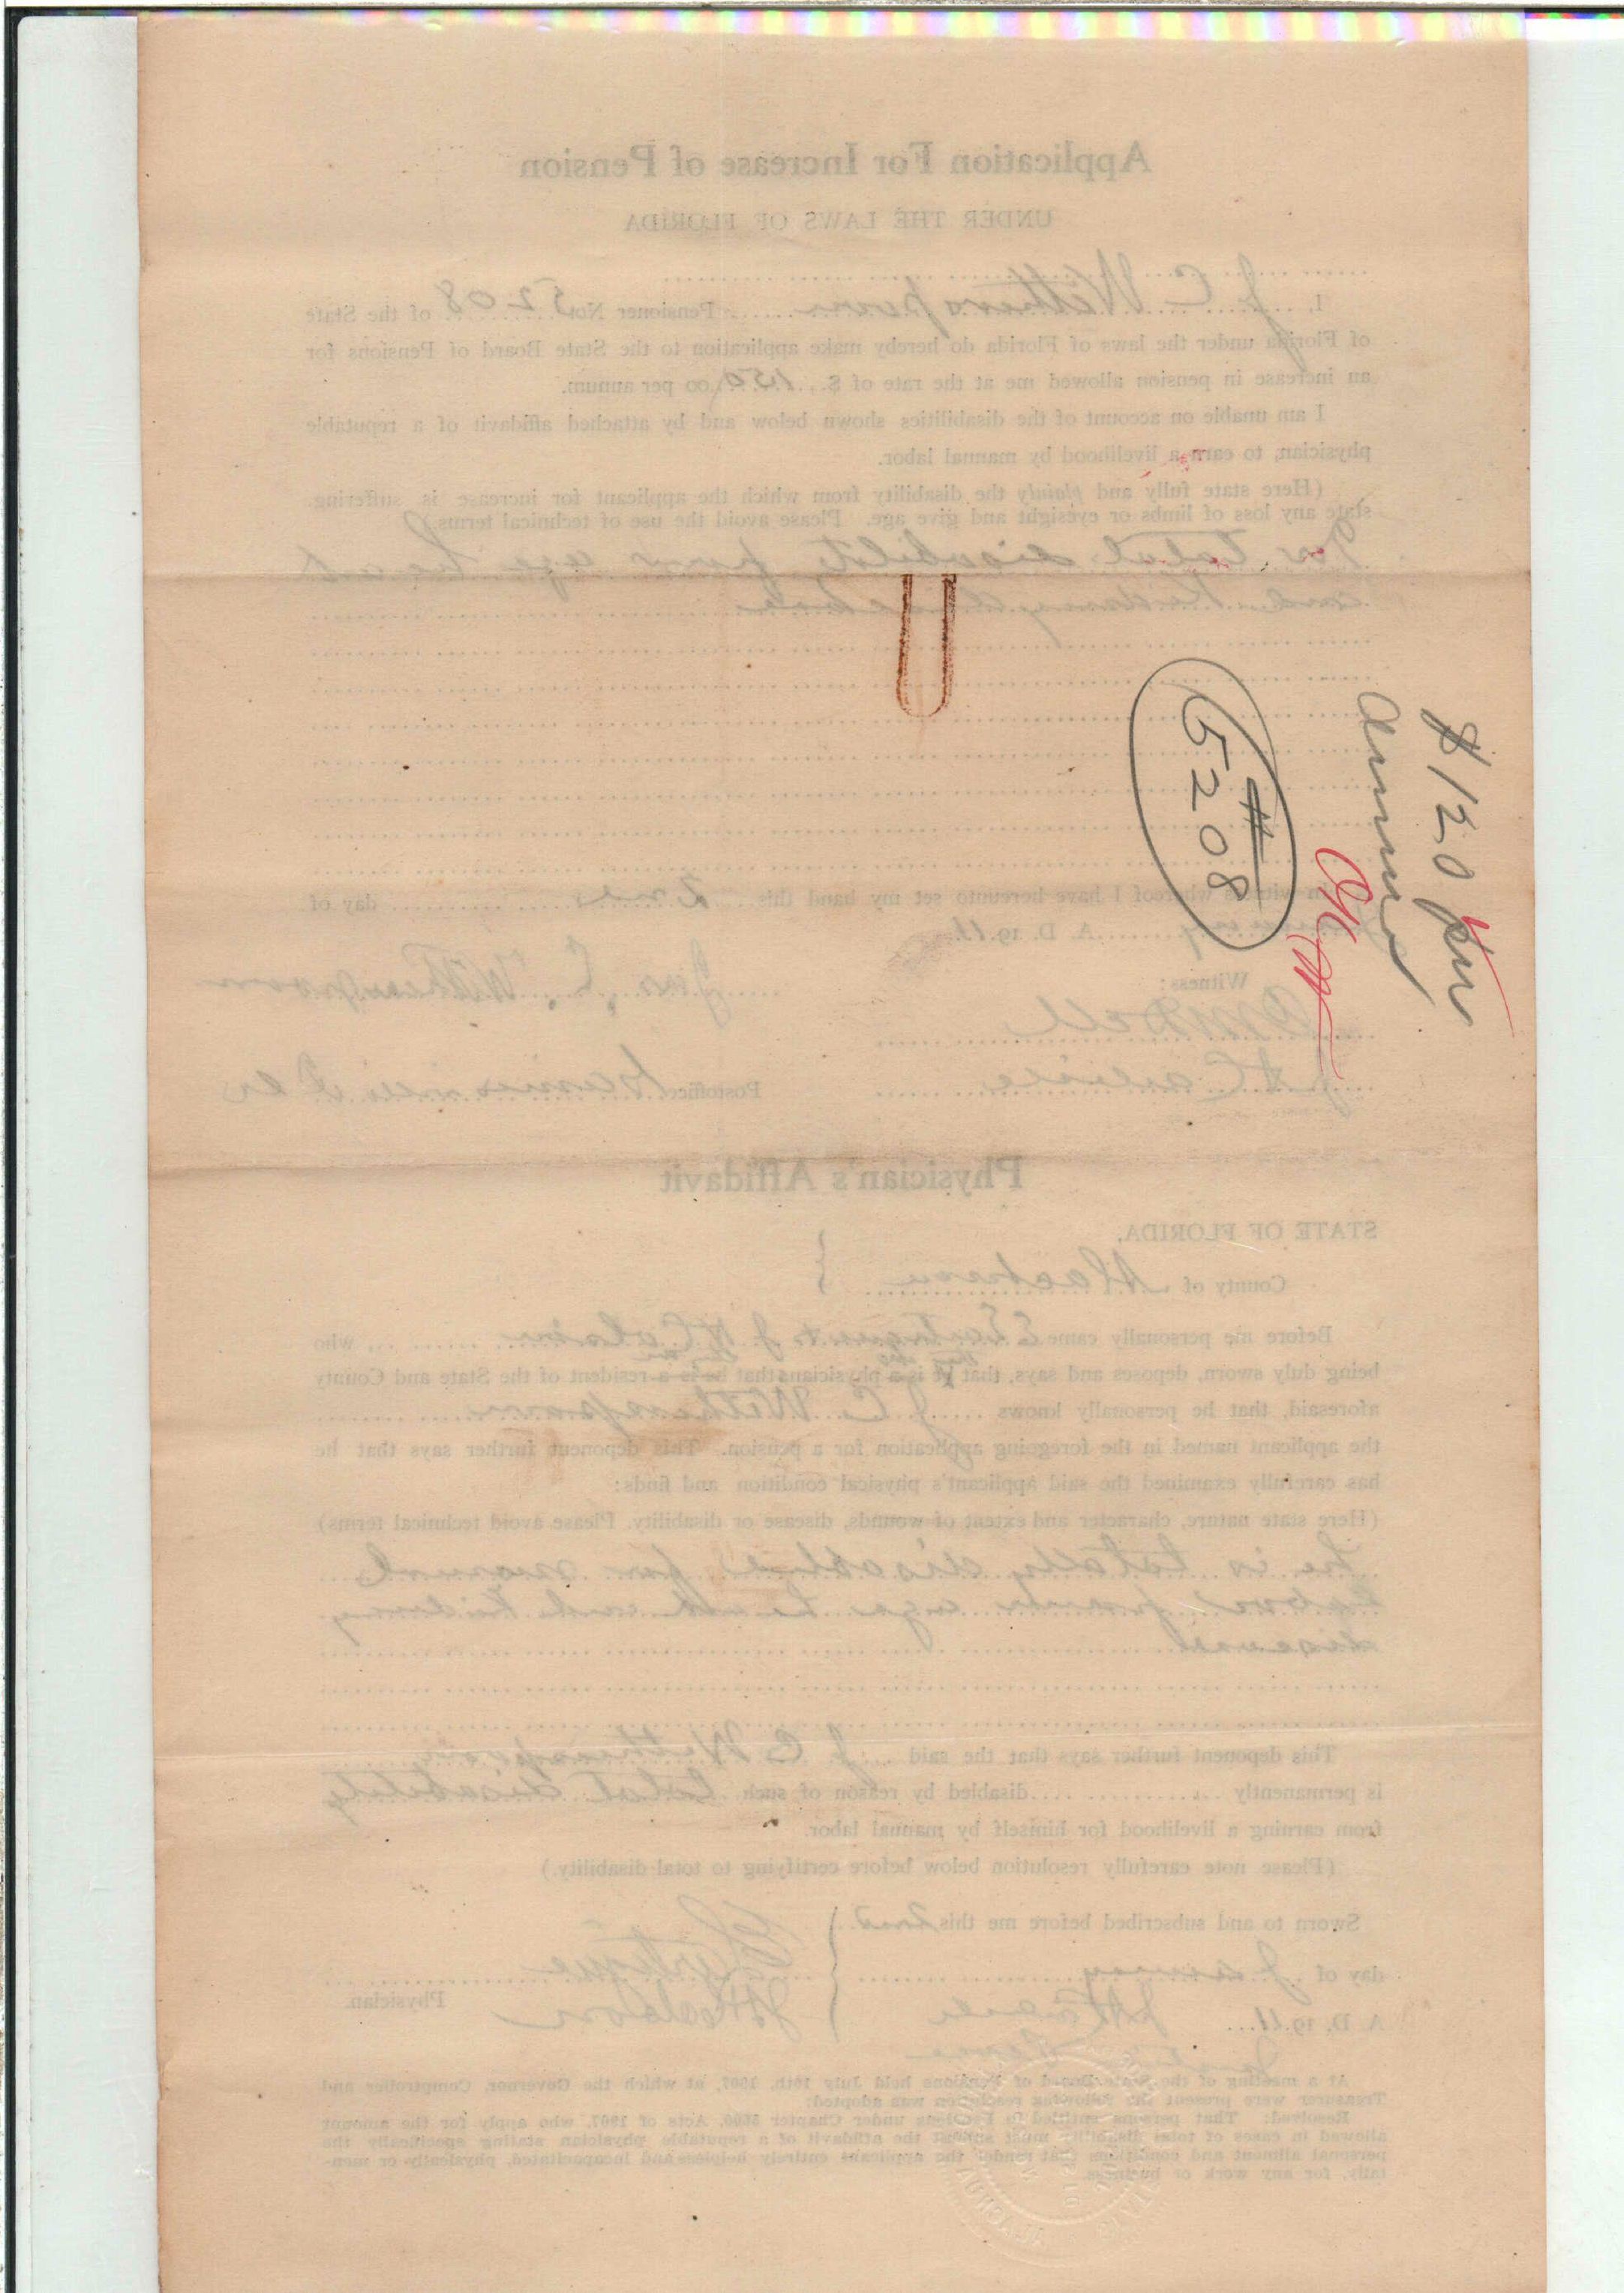 $120 per
annum
# 5208
Application For Increase of Pension
UNDER THE LAWS OF FLORIDA
I, J. C. Witherspoon Pensioner No. 5208 of the State
of Florida under the laws of Florida do hereby make application to the State Board of Pensions for
an increase in pension allowed me at the rate of $ 150.00 per annum.
I am unable on account of the disabilities shown below and by attached affidavit of a reputable
physician, to earn a livelihood by manual labor.
(Here state fully and plainly the disability from which the applicant for increase is suffering.
state any loss of limbs or eyesight and give age. Please avoid the use of technical terms.)
For total disability from age heart
and Kidney
In witness whereof I have hereunto set my hand this 2nd day of
January A. D. 1911
Witness:
Jno. C. Witherspoon
Postoffice
Physician's Affidavit
STATE OF FLORIDA,
County of Alachua
Before me personally came who
being duly sworn, deposes and says, that he is a physician that he is a resident of the State and County
aforesaid, that he personally knows J C Witherspoon
the applicant named in the foregoing application for a pension. This deponent further says that he
has carefully examined the said applicant's physical condition and finds:
(Here state nature, character and extent of wounds, disease or disability. Please avoid technical terms)
he is totally disabled for manual
labor from age heart and kidney
disease
This deponent further says that the said J C Witherspoon
is permanently disabled by reason of such total disability
from earning a livelihood for himself by manual labor.
(Please note carefully resolution below before certifying to total disability.)
Sworn to and subscribed before me this 2nd
day of January
A. D. 1911
Physician.
At a meeting of the State Board of Pensions held July 19th, 1907, at which the Governor, Comptroller and
Treasurer were present the following resolution was adopted:
Resolved: That persons entitled to Pensions under Chapter 5600, Acts of 1907, who apply for the amount
allowed in cases of total disability must submit the affidavit of a reputable physician stating specifically the
personal ailment and conditions that render the applicant entirely helpless and incapacitated, physically or men-
tally, for any work or business.